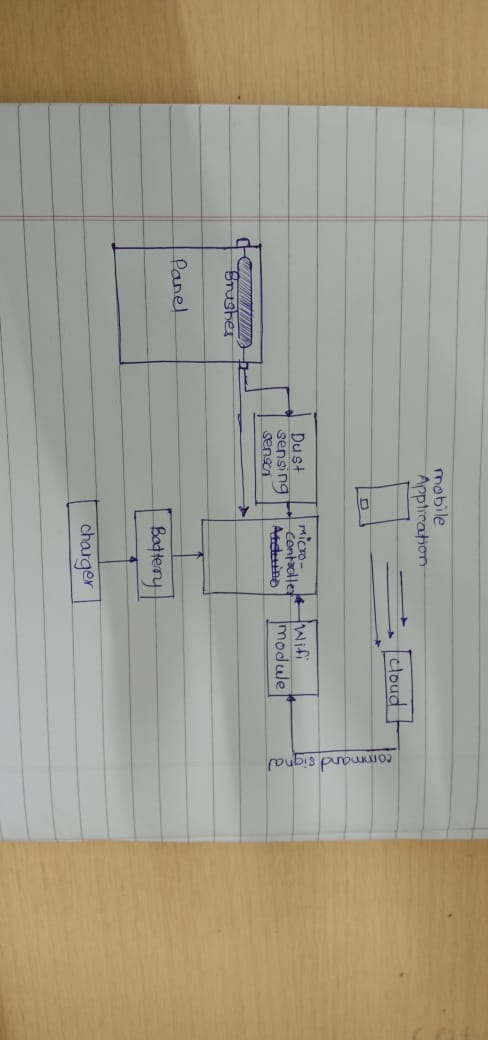 mobile
Application
cloud
command signal
Dust
sensing
sensor
micro-
controller
Arduino
Wifi
module
Brushes
Panel
Battery
charger